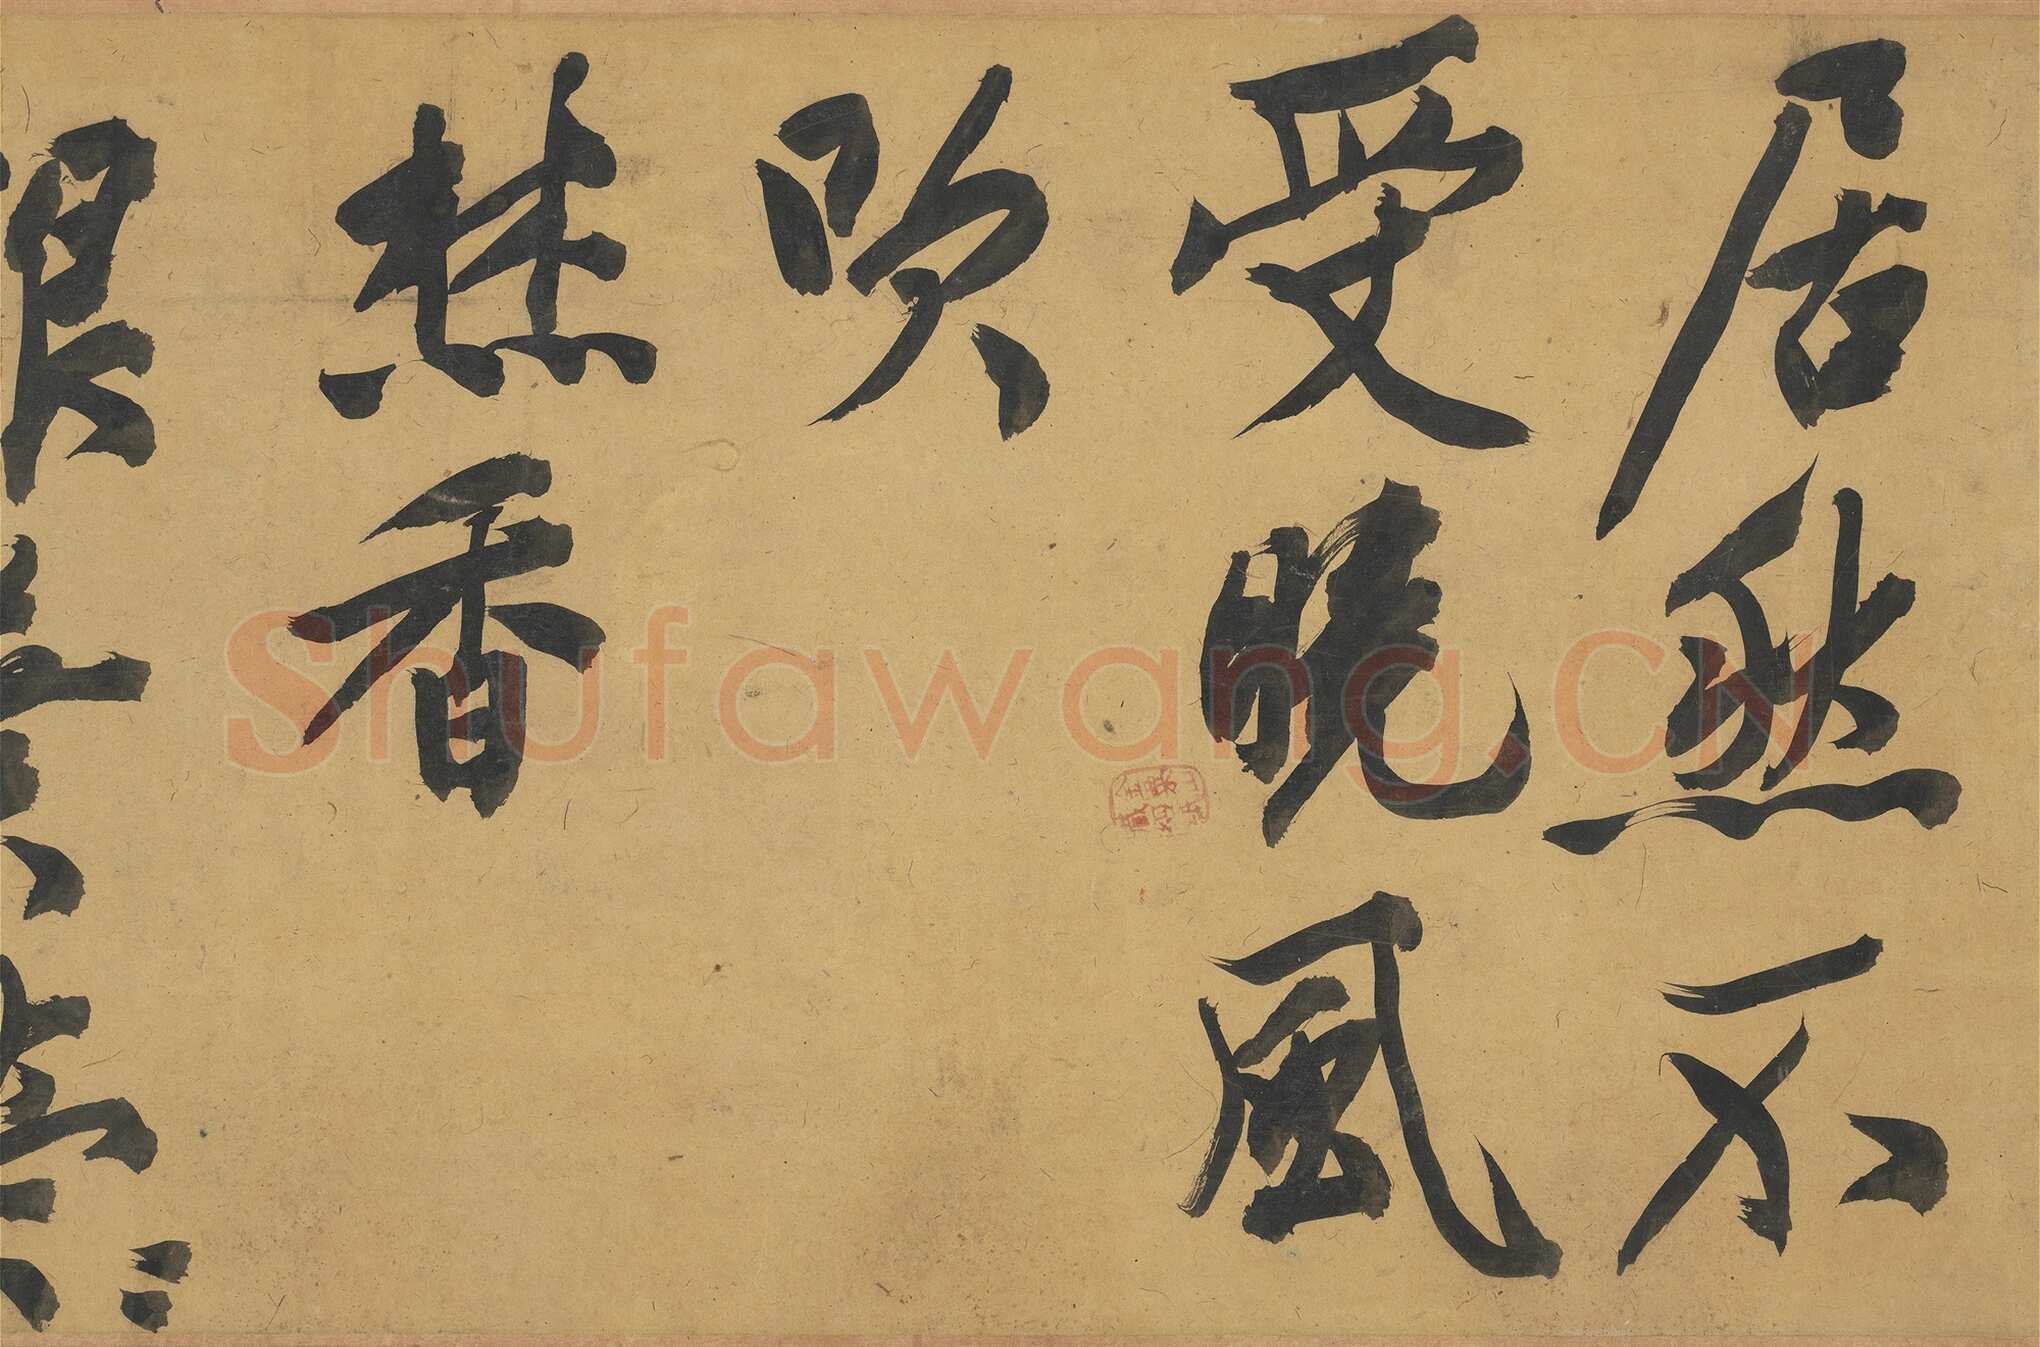 居然不
受晚風
吹
焚香
Shufawang.CN